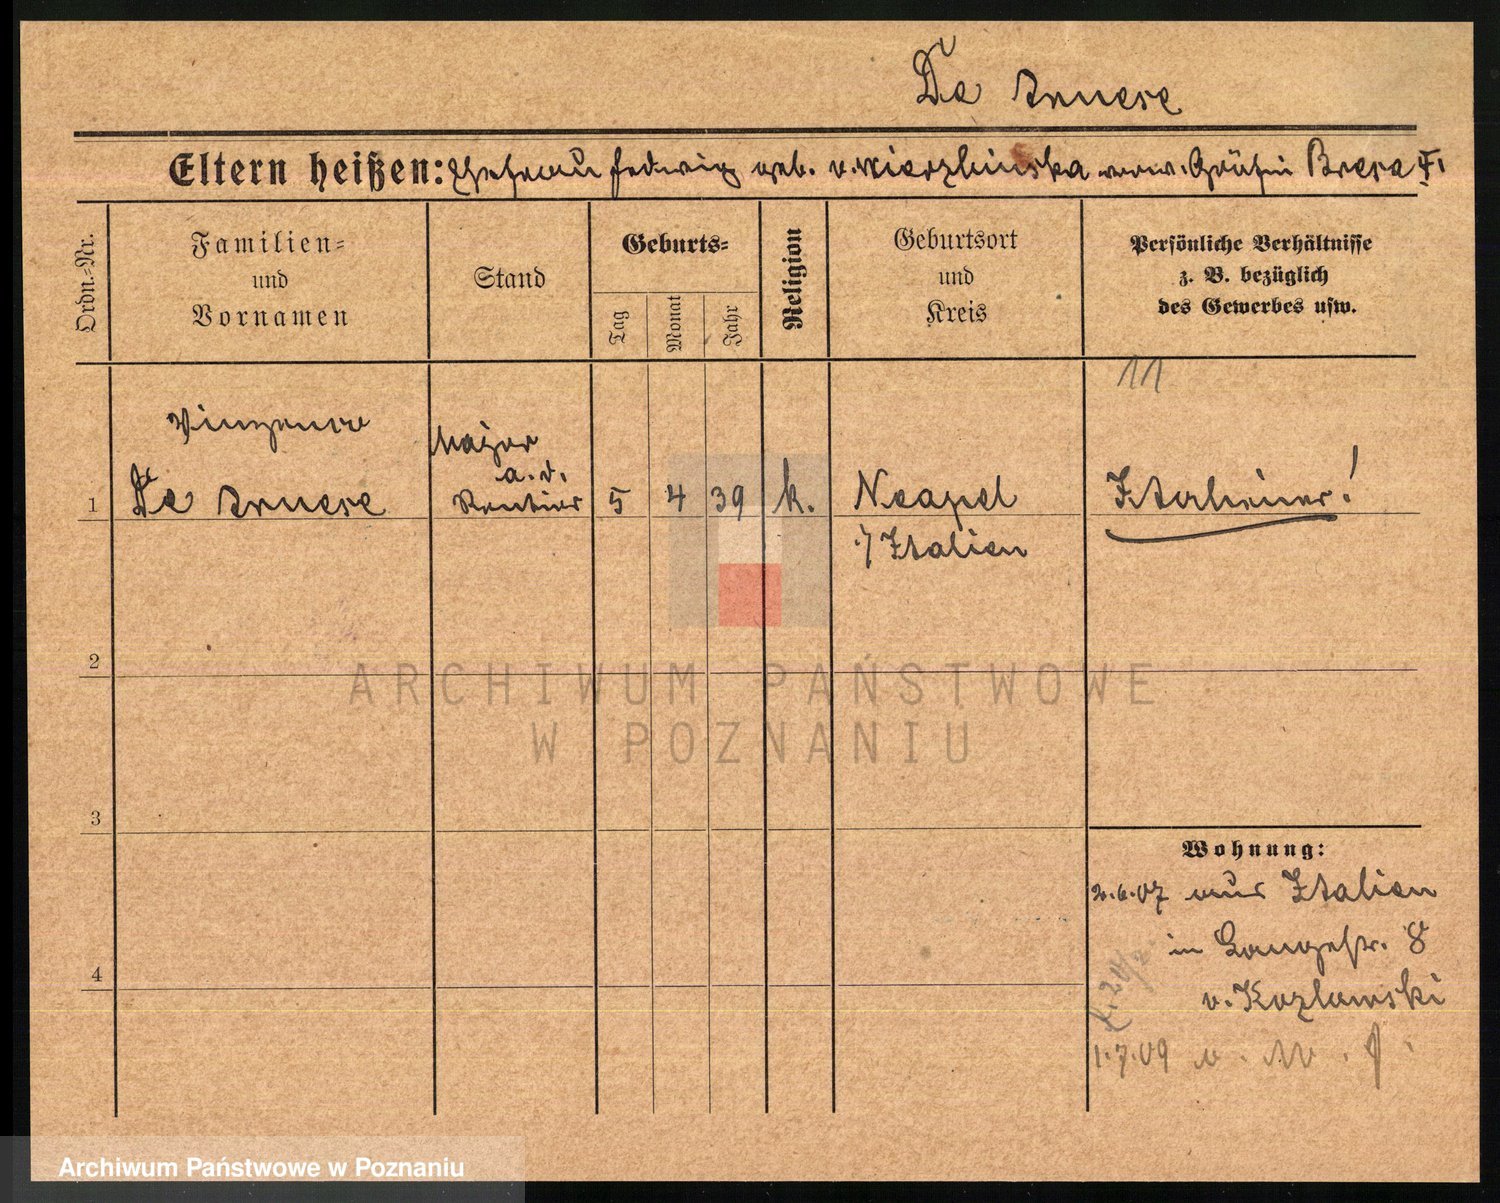 De
Eltern heißen: Ehefrau Hedwig geb. v. Wierzbinska verw. Gräfin Breza †.
Ordn.-Nr.
Familien-
und
Vornamen
Stand
Geburts-
Tag
Monat
Jahr
Religion
Geburtsort
und
Kreis
Persönliche Verhältnisse
z. B. bezüglich
des Gewerbes usw.
11
Major
a. D.
Rentier
1
De
5
4
39
k.
Neapel
i/ Italien
Italiener!
2
ARCHIWUM PAŃSTWOWE
W POZNANIU
3
Wohnung:
2.6.07 aus Italien
in Langestr. 8
v. Kozlowski
4
1.7.09
Archiwum Państwowe w Poznaniu